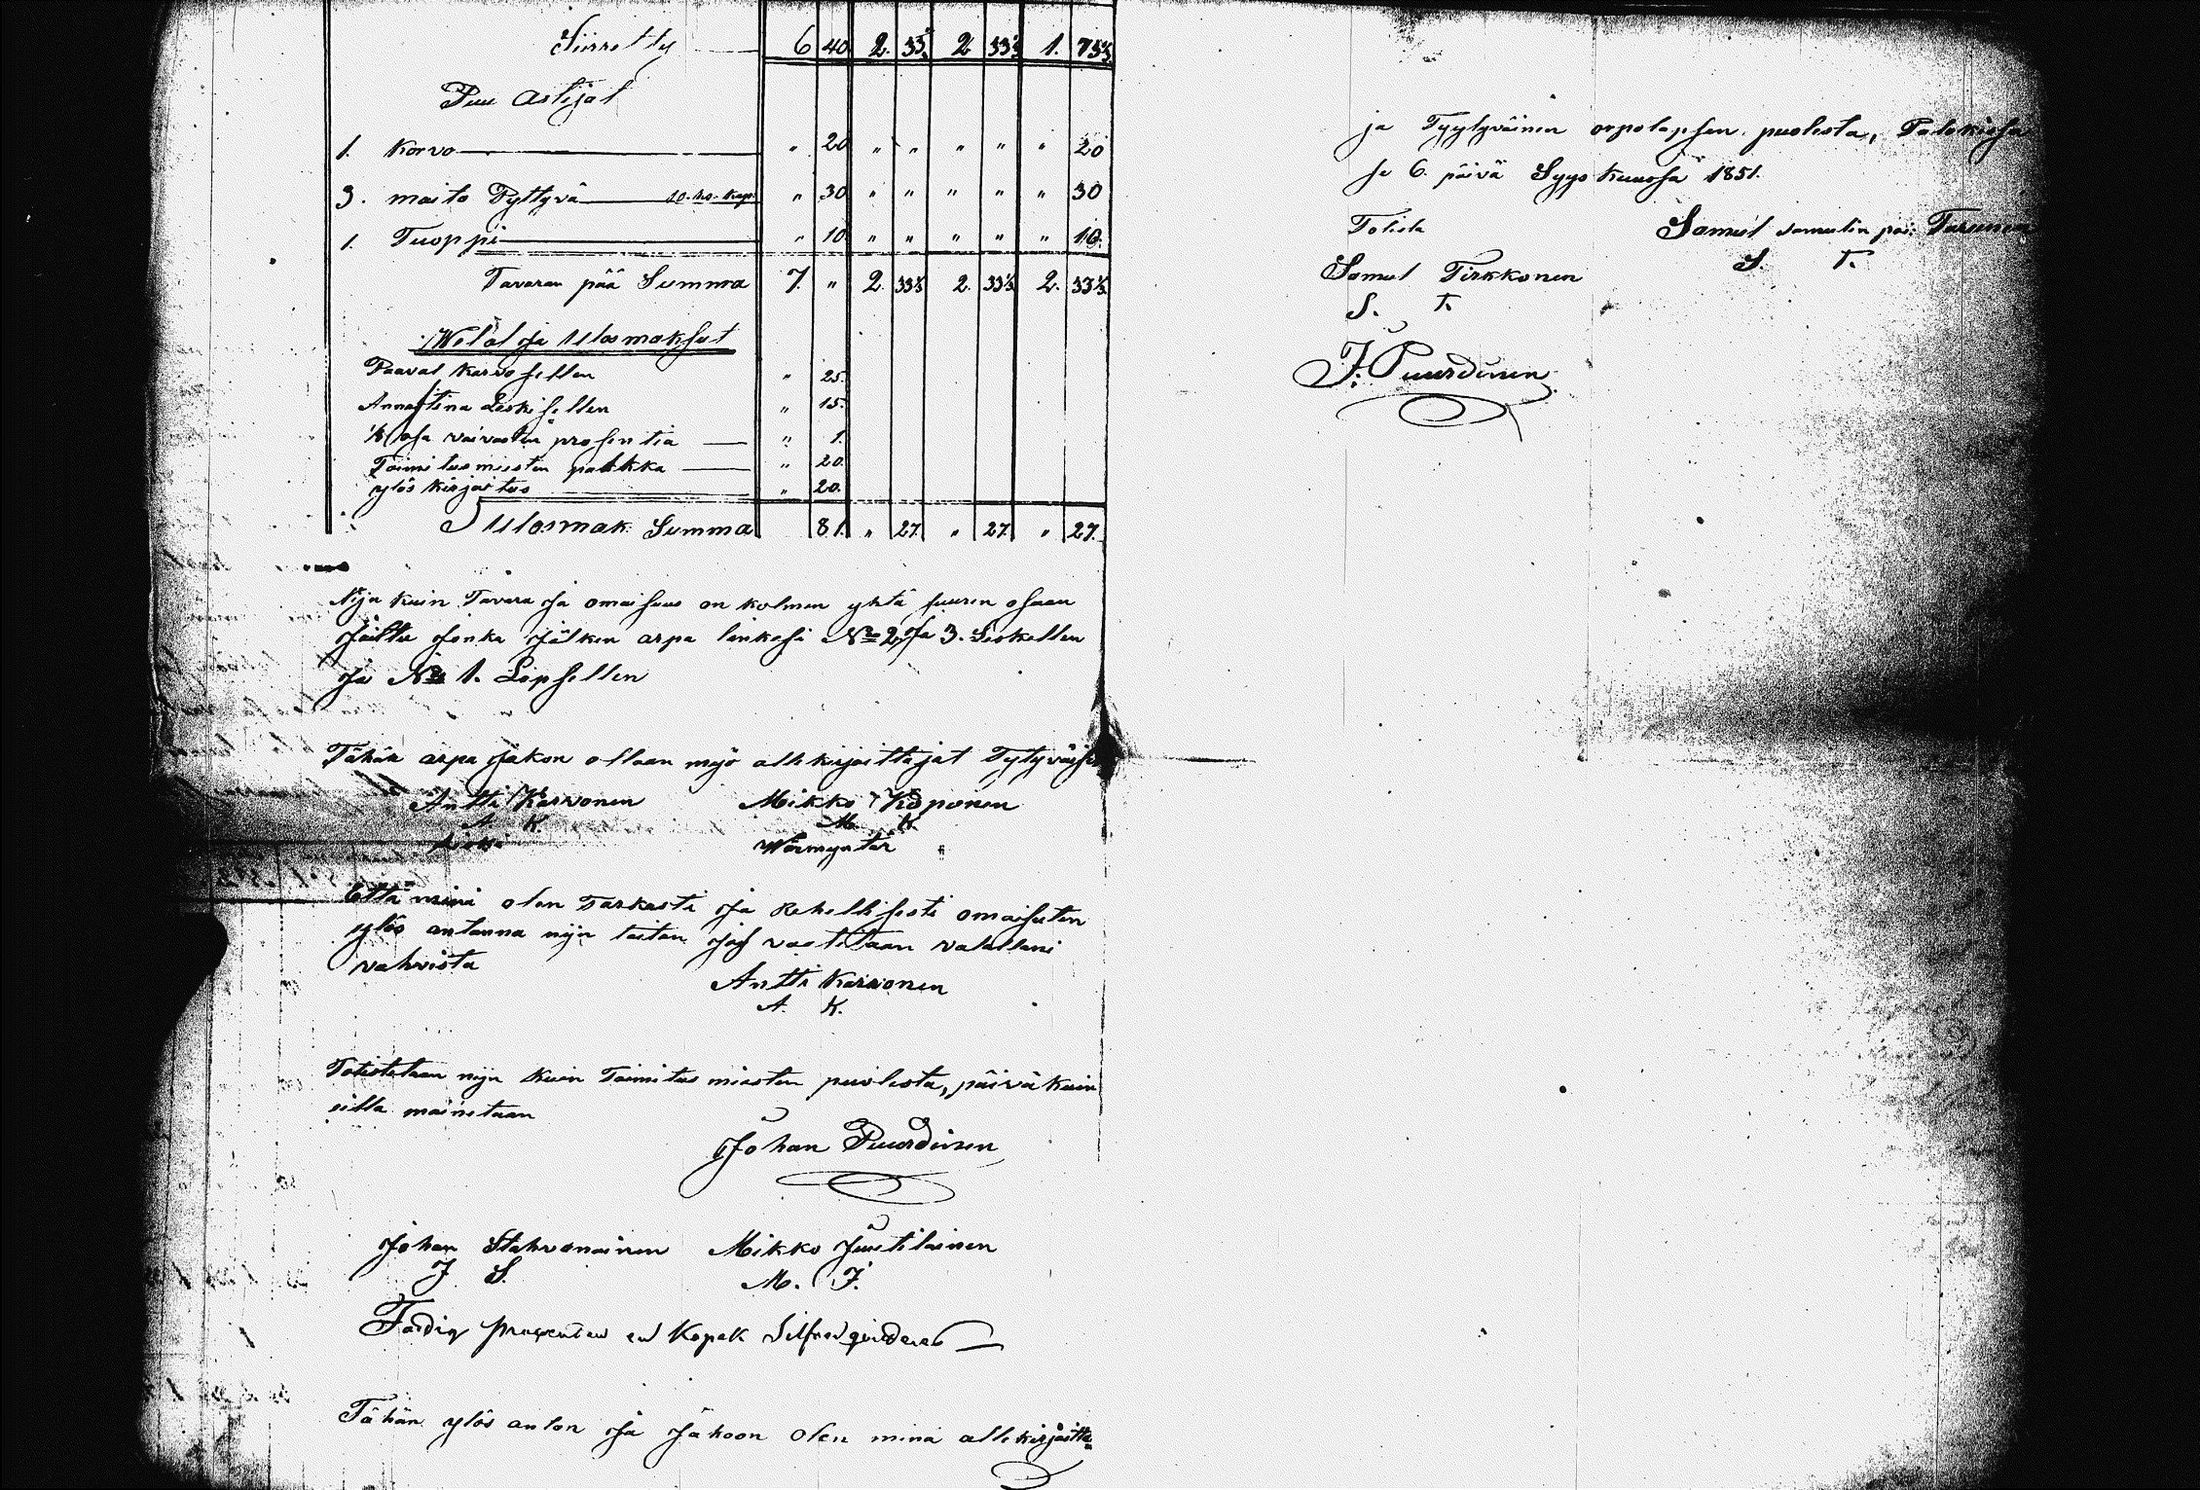 Siirretty 6 40 2. 33⅓ 2 33⅓ 1. 73⅓
Puu Astijat
1. Korvo " 20 " " " " " 20
3. maito Pyttyvä 10. ho. kap. " 30 " " " " " 30
1. Tuoppi " 10 " " " " " 10.
Tavaran pää Summa 7. " 2. 33⅓ 2. 33⅓ 2. 33⅓
Welat ja Ulosmaksut
Paaval Karvosellen " 25.
Annastina Leskisellen " 15.
⅛ osa vaivasten prosentia " 1.
Toimitusmiesten palkka " 20.
ylös kirjoitus " 20.
Ulosmak Summa 81. " 27. " 27. " 27.
Nijn kuin Tavara ja omaisuus on kolmen yhtä suuren osaan
jaittu jonka jälken arpa linkesi No 2 ja 3. Leskellen
ja No 1. Lapsellen
Tähän arpa jakon ollaan myö allekirjoittajat Tytyväiset
Antti Karvonen Mikko Koponen
A. K. M. K.
Leski
Että minä olen tarkasti ja Rehellisesti omaisuten
ylös antanna nijn taitan jos vaatitaan valallani
vahvista
Antti Karvonen
A. K.
Totistetaan nijn kuin Toimitus miesten puolesta, päivä kuin
eillä mainitaan
Johan Puurdinen
Johan Stahvanainen Mikko Juutilainen
J S. M. J.
Fattig procenten en Kopek Silfver
Tähän ylös anton ja jakoon olen minä allekirjoitta=
ja Tyytyväinen orpolapsen puolesta,
se 6. päivä Syys Kuussa 1851.
Totista Samuel samulin poi: Turunen
S. T.
Samul Tirkkonen
S. T.
J. Puurdinen